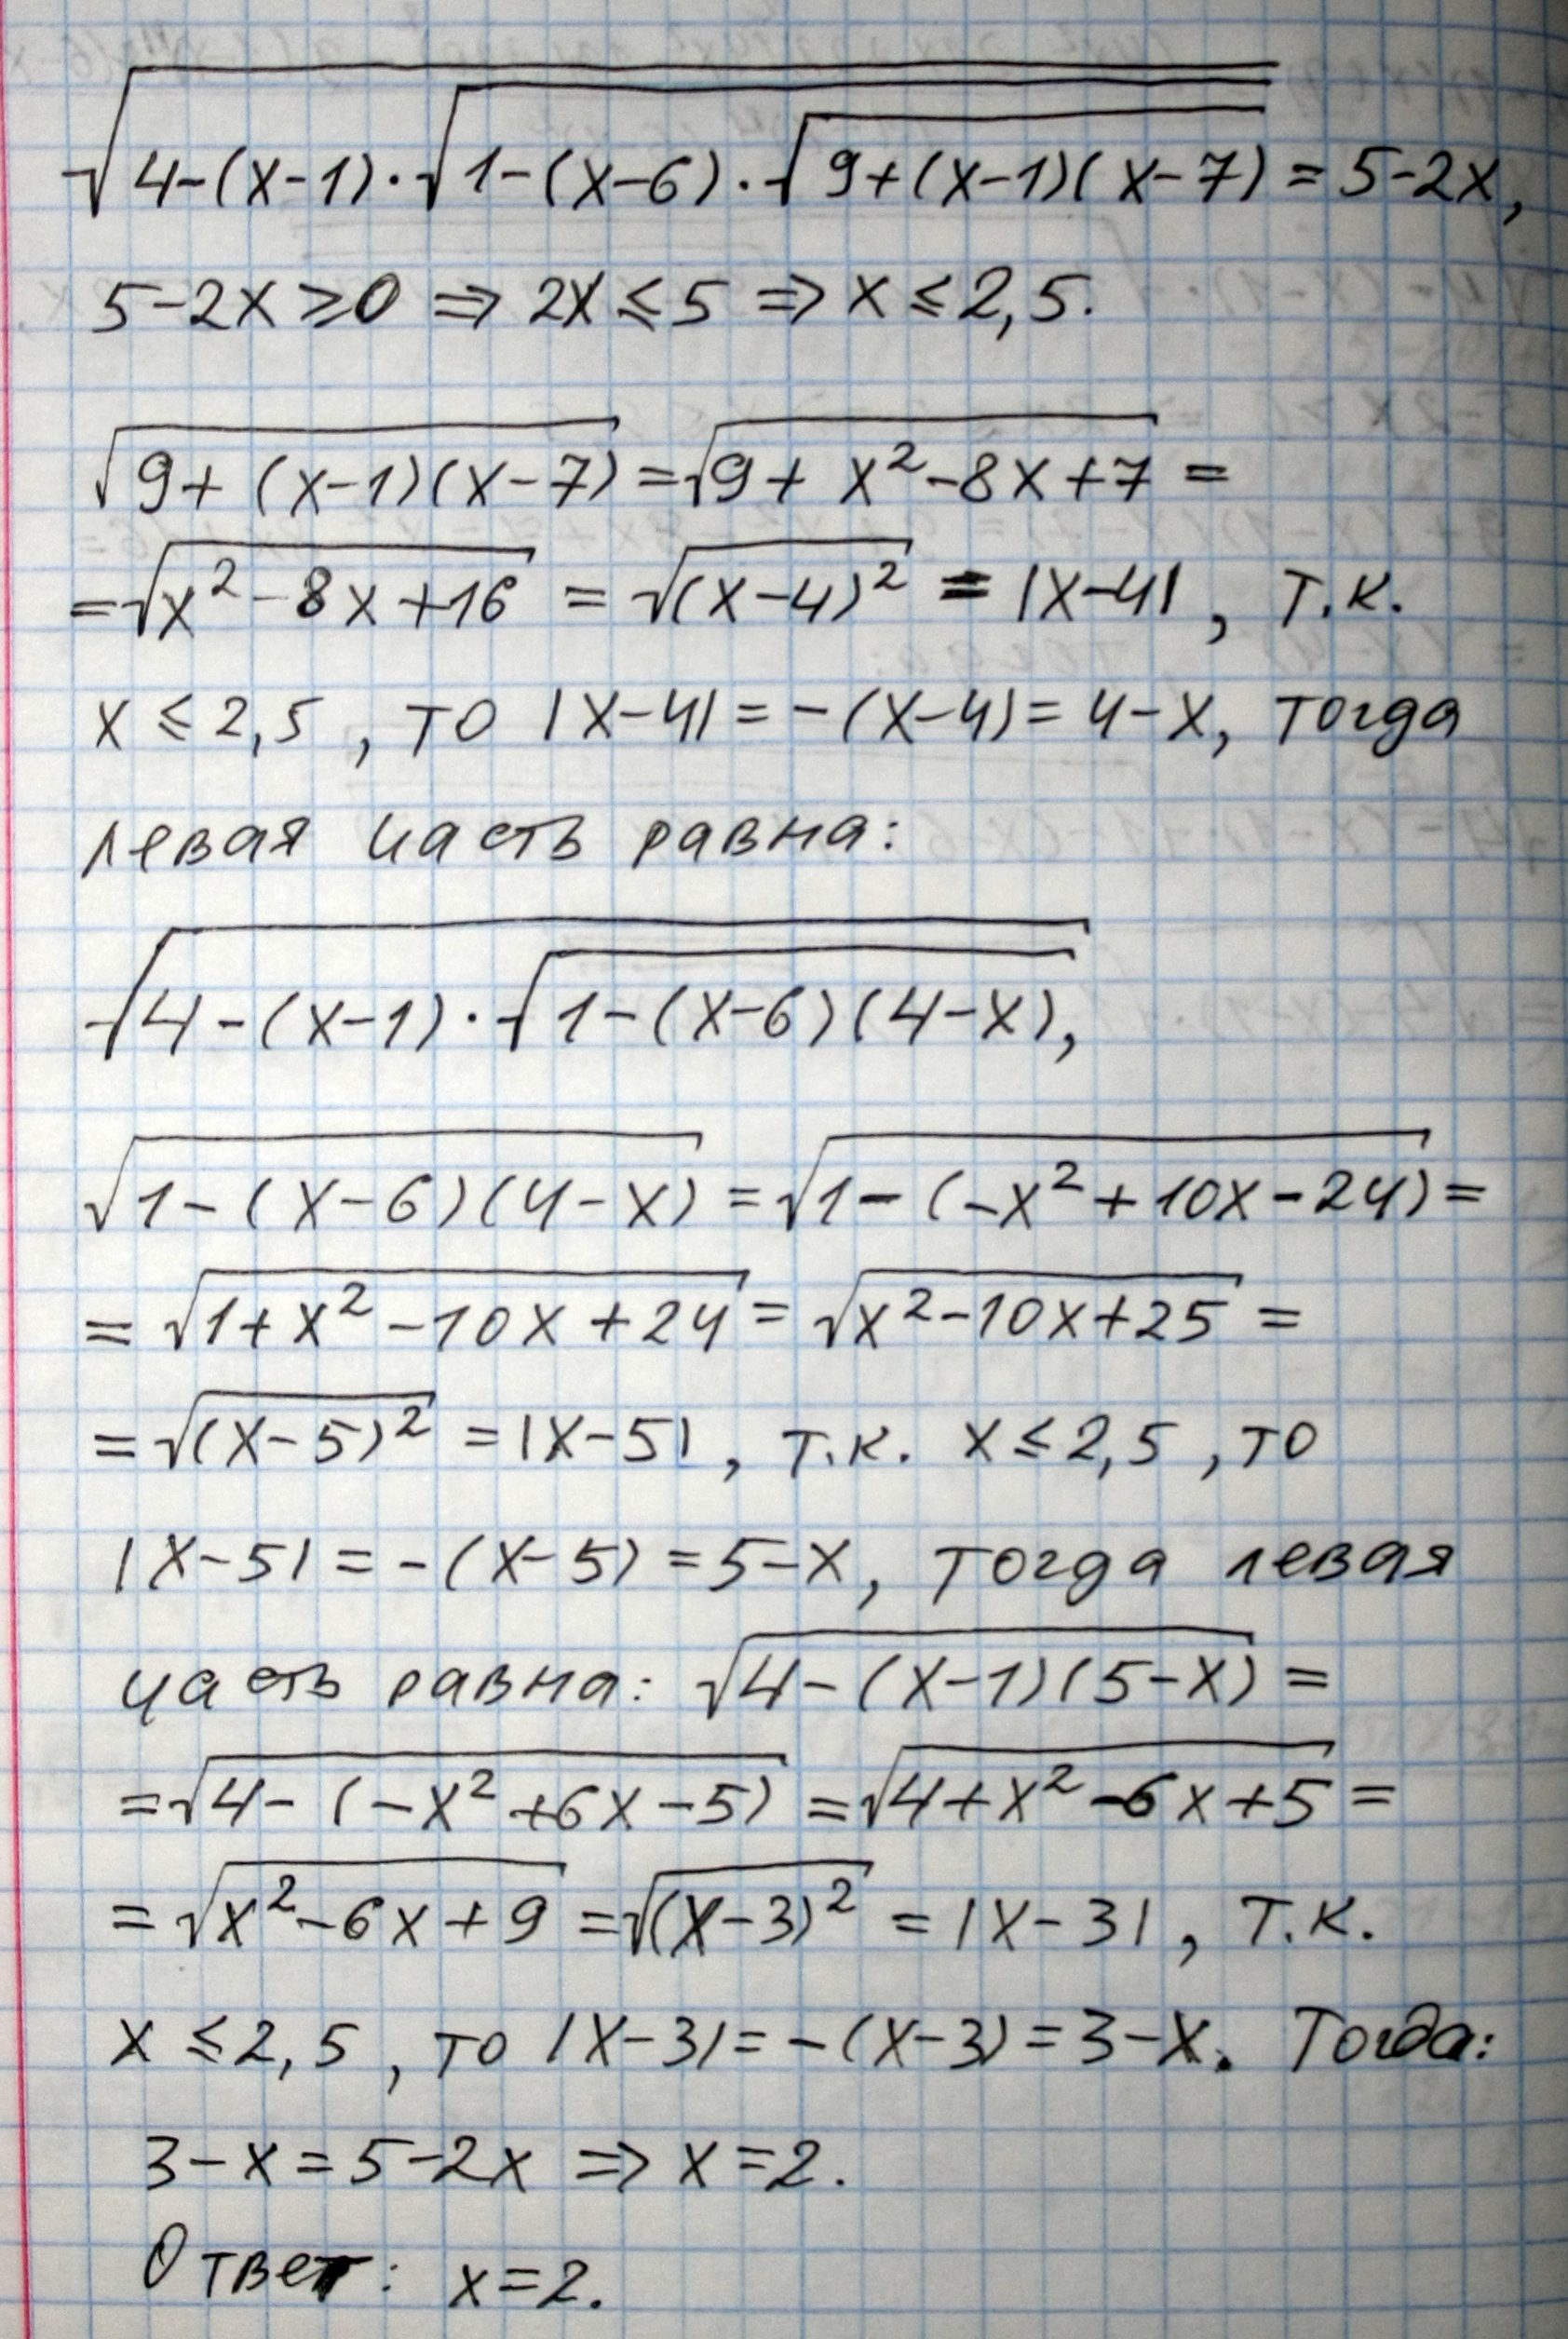 √(4-(x-1)·√(1-(x-6)·√(9+(x-1)(x-7)))) = 5-2x,
5-2x ≥ 0 ⇒ 2x ≤ 5 ⇒ x ≤ 2,5.
√(9+(x-1)(x-7)) = √(9+x²-8x+7) =
= √(x²-8x+16) = √((x-4)²) = |x-4|, т.к.
x ≤ 2,5, то |x-4| = -(x-4) = 4-x, тогда
левая часть равна:
√(4-(x-1)·√(1-(x-6)(4-x))),
√(1-(x-6)(4-x)) = √(1-(-x²+10x-24)) =
= √(1+x²-10x+24) = √(x²-10x+25) =
= √((x-5)²) = |x-5|, т.к. x ≤ 2,5, то
|x-5| = -(x-5) = 5-x, тогда левая
часть равна: √(4-(x-1)(5-x)) =
= √(4-(-x²+6x-5)) = √(4+x²-6x+5) =
= √(x²-6x+9) = √((x-3)²) = |x-3|, т.к.
x ≤ 2,5, то |x-3| = -(x-3) = 3-x. Тогда:
3-x = 5-2x ⇒ x = 2.
Ответ: x = 2.